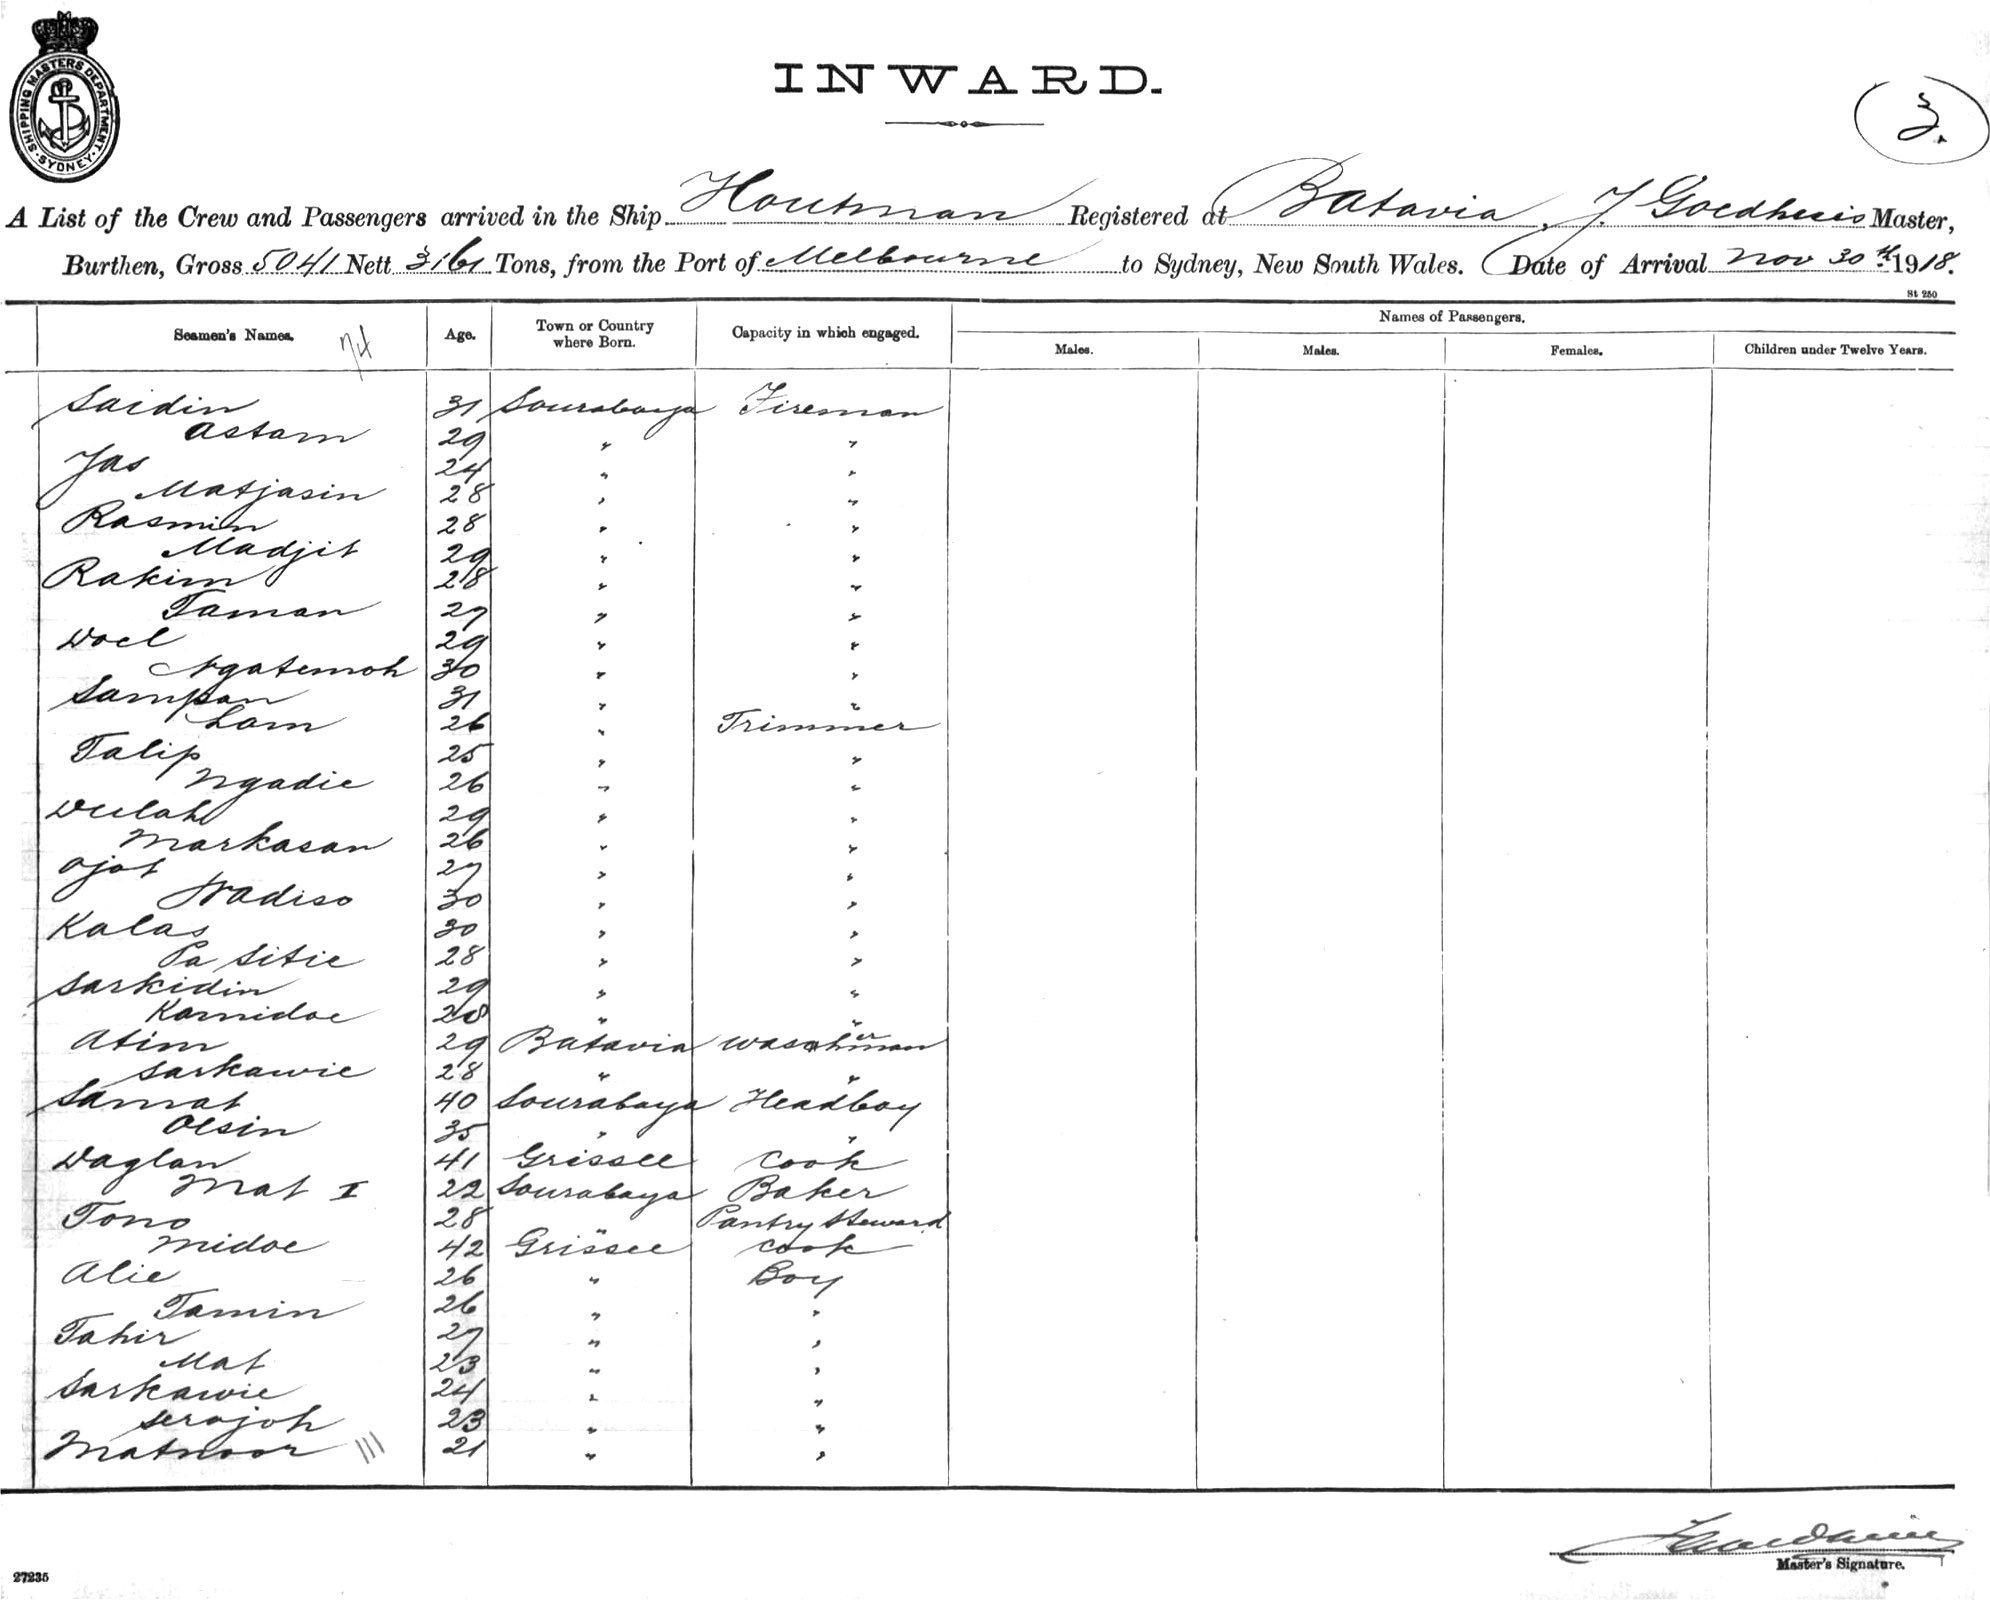 SHIPPING MASTERS DEPARTMENT. SYDNEY.
INWARD.
3.
A List of the Crew and Passengers arrived in the Ship Houtman Registered at Batavia, J. Goedhuis Master,
Burthen, Gross 5041 Nett 3161 Tons, from the Port of Melbourne to Sydney, New South Wales. Date of Arrival Nov 30th 1918.
St 250
Seamen's Names. Age. Town or Country where Born. Capacity in which engaged. Names of Passengers.
Males. Males. Females. Children under Twelve Years.
Saidin 31 Sourabaya Fireman
Astam 29 " "
Jas 24 " "
Matjasin 28 " "
Rasmin 28 " "
Madjit 29 " "
Rakim 28 " "
Taman 27 " "
Doel 29 " "
Ngatemoh 30 " "
Sampan 31 " "
Lam 26 " Trimmer
Talip 25 " "
Ngadie 26 " "
Dulah 29 " "
Markasan 26 " "
Ojot 27 " "
Wadiso 30 " "
Kalas 30 " "
Pa Sitie 28 " "
Sarkidin 29 " "
Kamidoe 28 " "
Atim 29 Batavia washerman
Sarkawie 28 " "
Samat 40 Sourabaya Headboy
Oesin 35 " "
Daglan 41 Grissee Cook
Mat I 22 Sourabaya Baker
Tono 28 " Pantry Steward
Midoe 42 Grissee Cook
Alie 26 " Boy
Tamin 26 " "
Tahir 27 " "
Mat 23 " "
Sarkawie 24 " "
Serajoh 23 " "
Matnoor 21 " "
Master's Signature.
27235